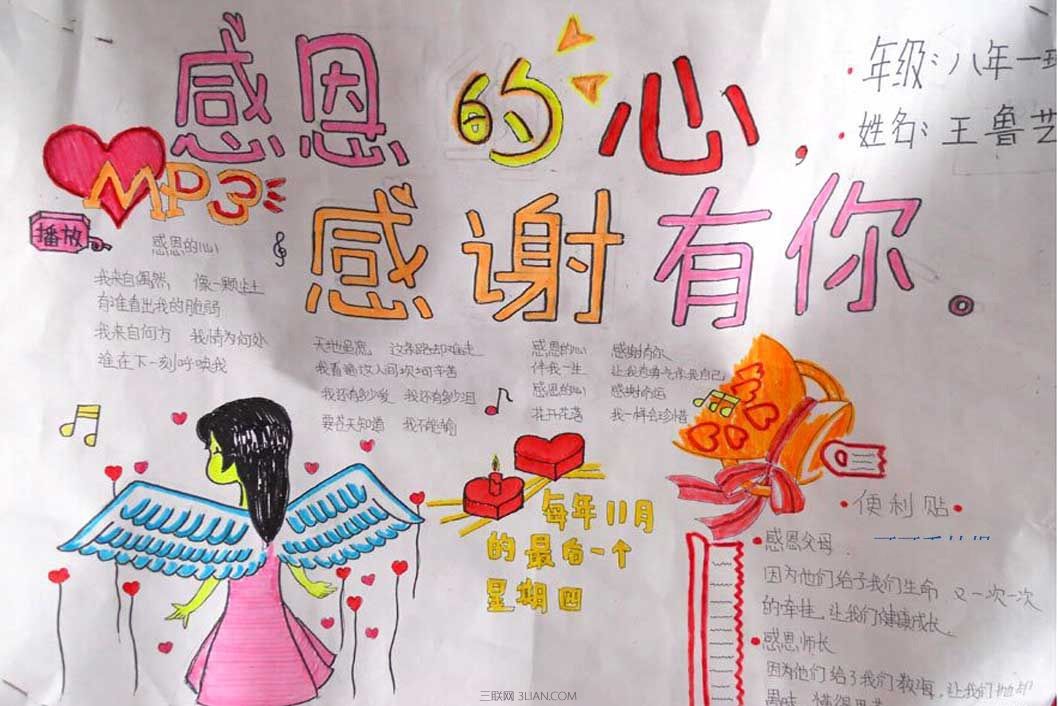 感恩的心，
感谢有你。
年级：八年一班
姓名：王鲁艺
MP3
播放
感恩的心
我来自偶然， 像一颗尘土
有谁看出我的脆弱
我来自何方 我情为何处
谁在下一刻呼唤我
天地虽宽， 这条路却难走
我看遍这人间坎坷辛苦
我还有多少爱 我还有多少泪
要苍天知道 我不能输
感恩的心 感谢有你
伴我一生 让我有勇气作我自己
感恩的心 感谢命运
花开花落 我一样会珍惜
每年11月
的最后一个
星期四
便利贴
感恩父母
因为他们给予我们生命 又一次一次
的牵挂，让我们健康成长。
感恩师长
因为他们给了我们教诲，让我们抛却
愚昧，懂得思考
三联网 3LIAN.COM